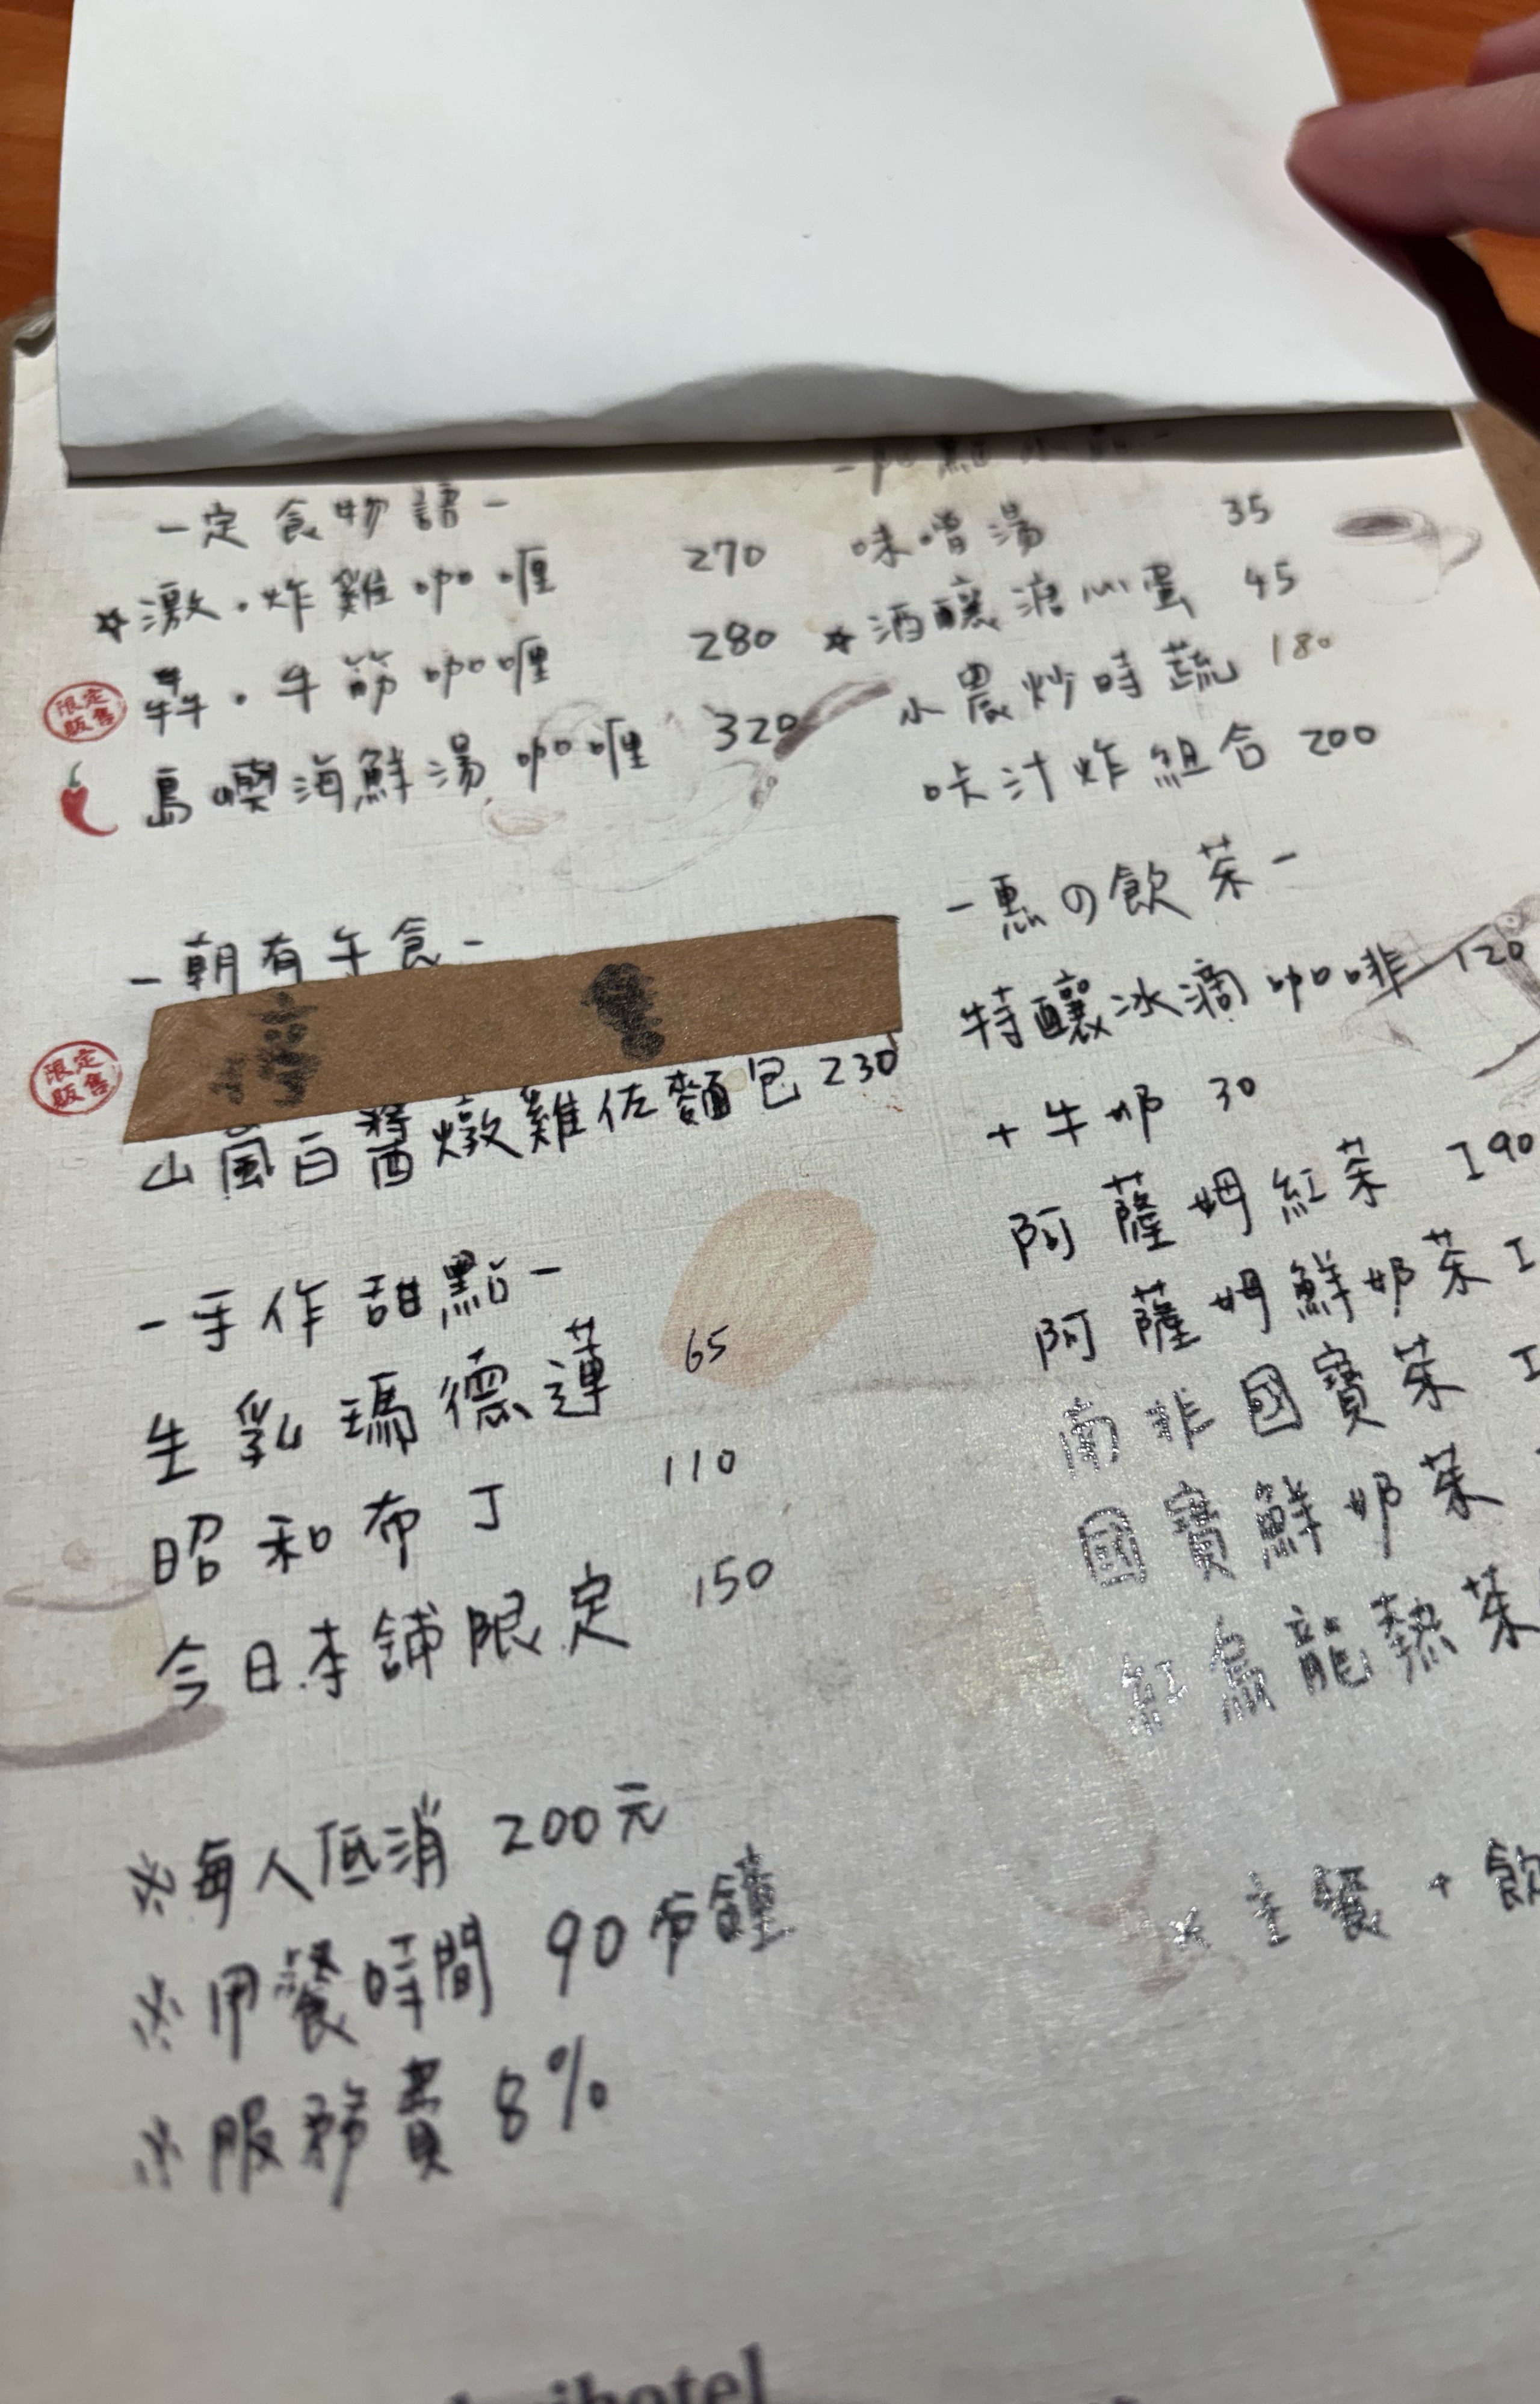 -定食物語-
☆激·炸雞咖喱 270
限定販售
犇·牛筋咖喱 280
島喫海鮮湯咖喱 320
-朝有午食-
限定販售
山嵐白醬燉雞佐麵包 230
-手作甜點-
生乳瑪德蓮 65
昭和布丁 110
今日本舖限定 150
※每人低消 200元
※用餐時間 90分鐘
※服務費 8%
味噌湯 35
☆酒釀溏心蛋 45
小農炒時蔬 180
咔汁炸組合 200
-憙の飲茶-
特釀冰滴咖啡 120
+牛奶 30
阿薩姆紅茶 190
阿薩姆鮮奶茶
南非國寶茶
國寶鮮奶茶
紅烏龍熱茶
※主餐+飲